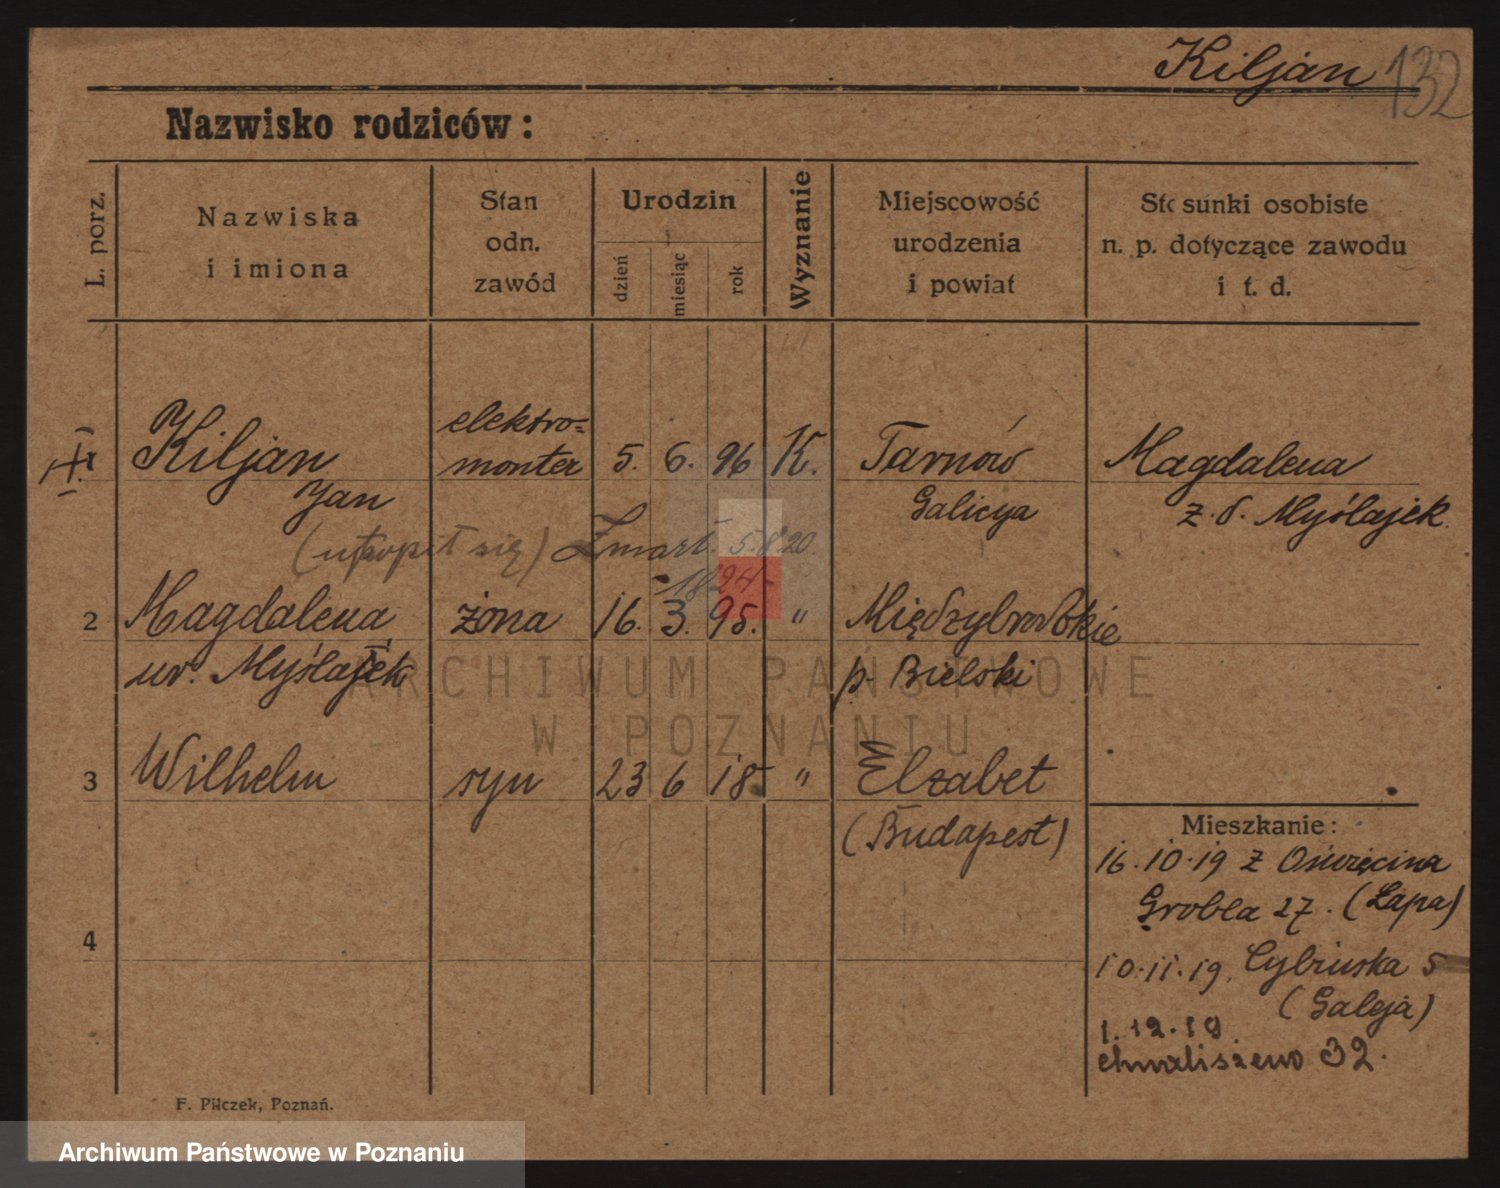 Kiljan 132
Nazwisko rodziców:
L. porz.
Nazwiska
i imiona
Stan
odn.
zawód
Urodzin
dzień
miesiąc
rok
Wyznanie
Miejscowość
urodzenia
i powiat
Stosunki osobiste
n. p. dotyczące zawodu
i t. d.
elektro=
1 Kiljan monter 5. 6. 96 K. Tarnów Magdalena
Jan Galicya z. d. Myślajek
(utopił się) Zmarł 5.8.20.
1894
2 Magdalena żona 16. 3. 95. " Międzybrodzkie
ur. Myślajek p. Bielski
ARCHIWUM PAŃSTWOWE
W POZNANIU
3 Wilhelm syn 23 6 18 " Elzabet
(Budapest)
4
Mieszkanie:
16.10.19 z Oświęcima
Grobla 27. (Łapa)
10.11.19. Cybińska 5
(Galeja)
1.12.19
Chwaliszewo 32.
F. Pilczek, Poznań.
Archiwum Państwowe w Poznaniu